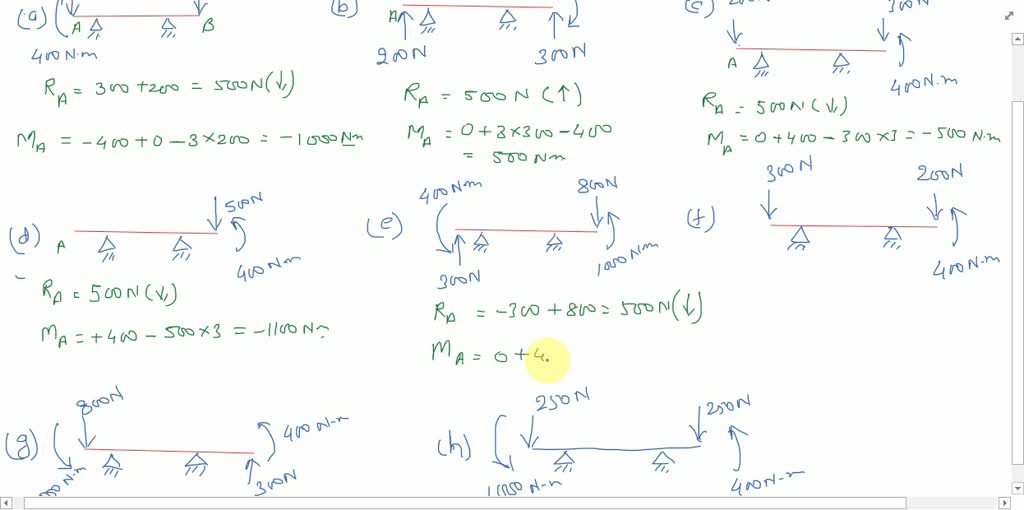 (a) A B
400N·m
R_A = 300 + 200 = 500N(↓)
M_A = -400 + 0 - 3×200 = -1000Nm
(b) A
200N 300N
R_A = 500N (↑)
M_A = 0 + 3×300 - 400
= 500Nm
(c) A
400N·m
R_A = 500N (↓)
M_A = 0 + 400 - 300×3 = -500N·m
(d) A 500N
400N·m
R_A = 500N(↓)
M_A = +400 - 500×3 = -1100Nm
(e) 400N·m 800N
300N 1000N·m
R_A = -300 + 800 = 500N(↓)
M_A = 0 + 4
(f) 300N 200N
400N·m
(g) 800N 400N-m
300N
(h) 250N 250N
400N-m